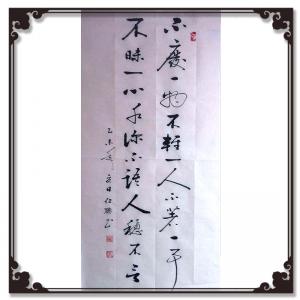 不廢一物不輕一人不著一事
不昧一心水深不語人穩不言
乙未夏